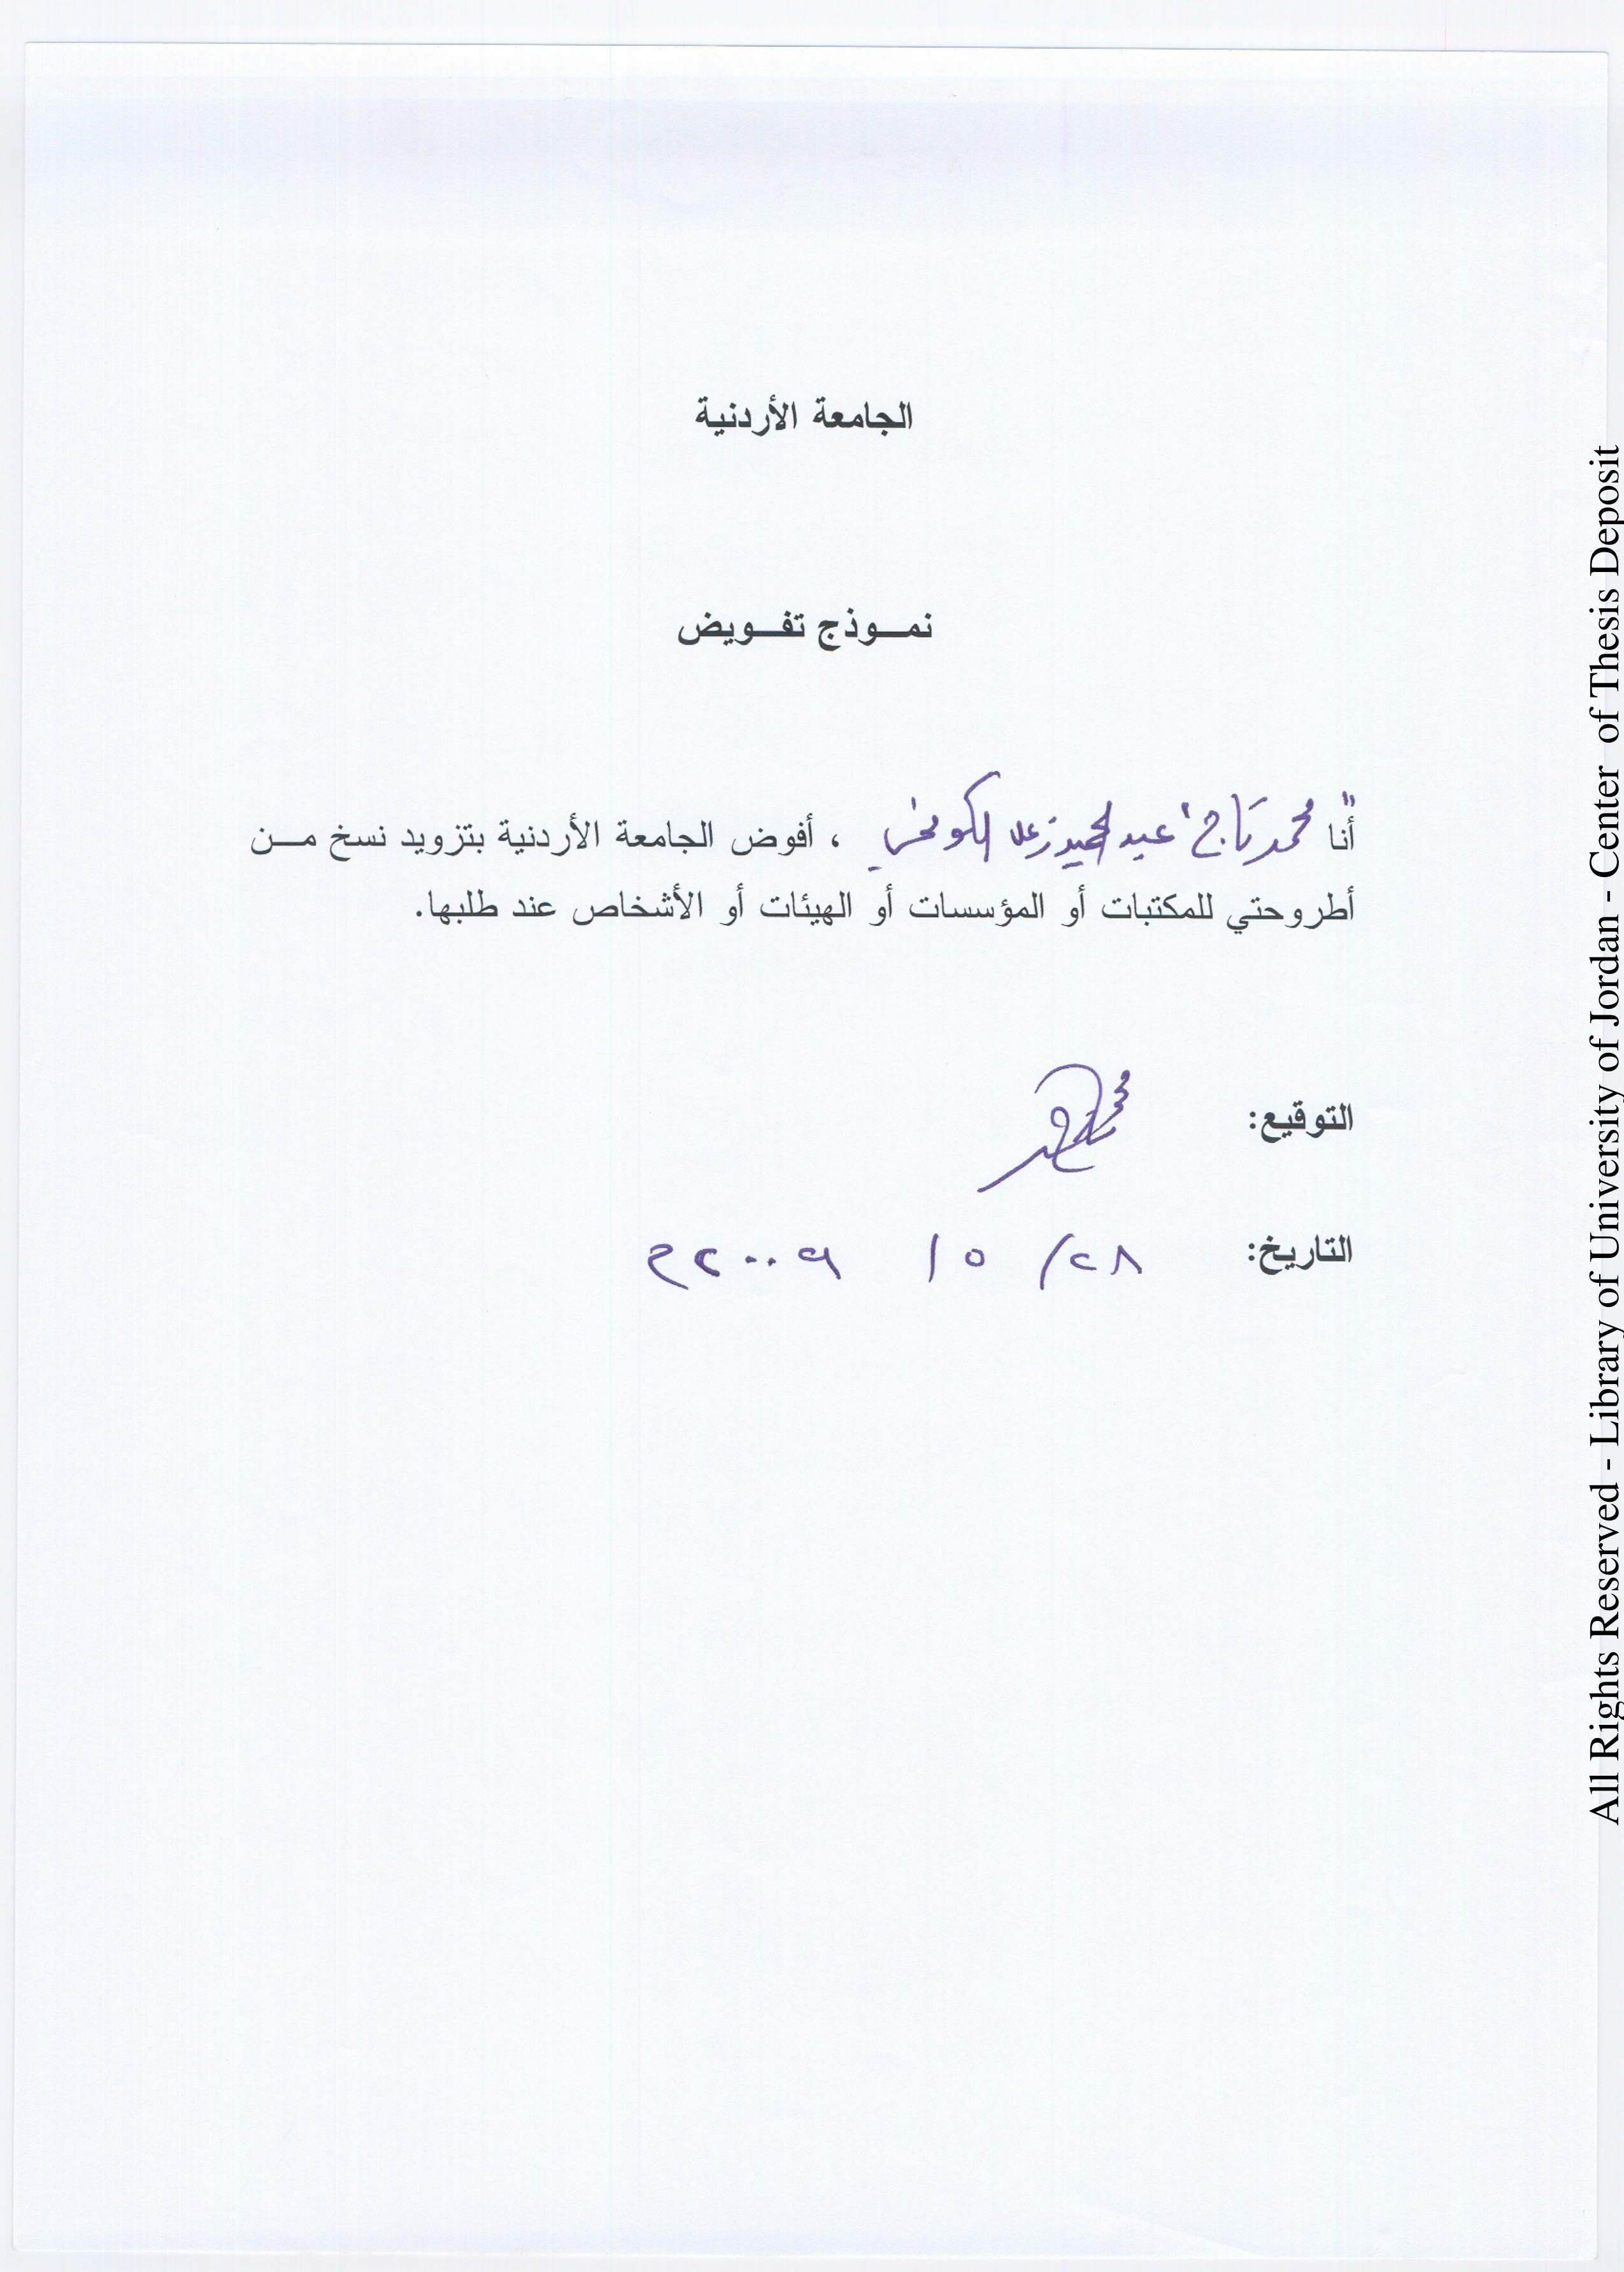 الجامعة الأردنية
نمـــوذج تفـــويض
أنا محمد تاج عبد الحميد ، أفوض الجامعة الأردنية بتزويد نسخ مـــن
أطروحتي للمكتبات أو المؤسسات أو الهيئات أو الأشخاص عند طلبها.
التوقيع:
التاريخ: ٢٨/ ٥ / ٢٠٠٩م
All Rights Reserved - Library of University of Jordan - Center of Thesis Deposit